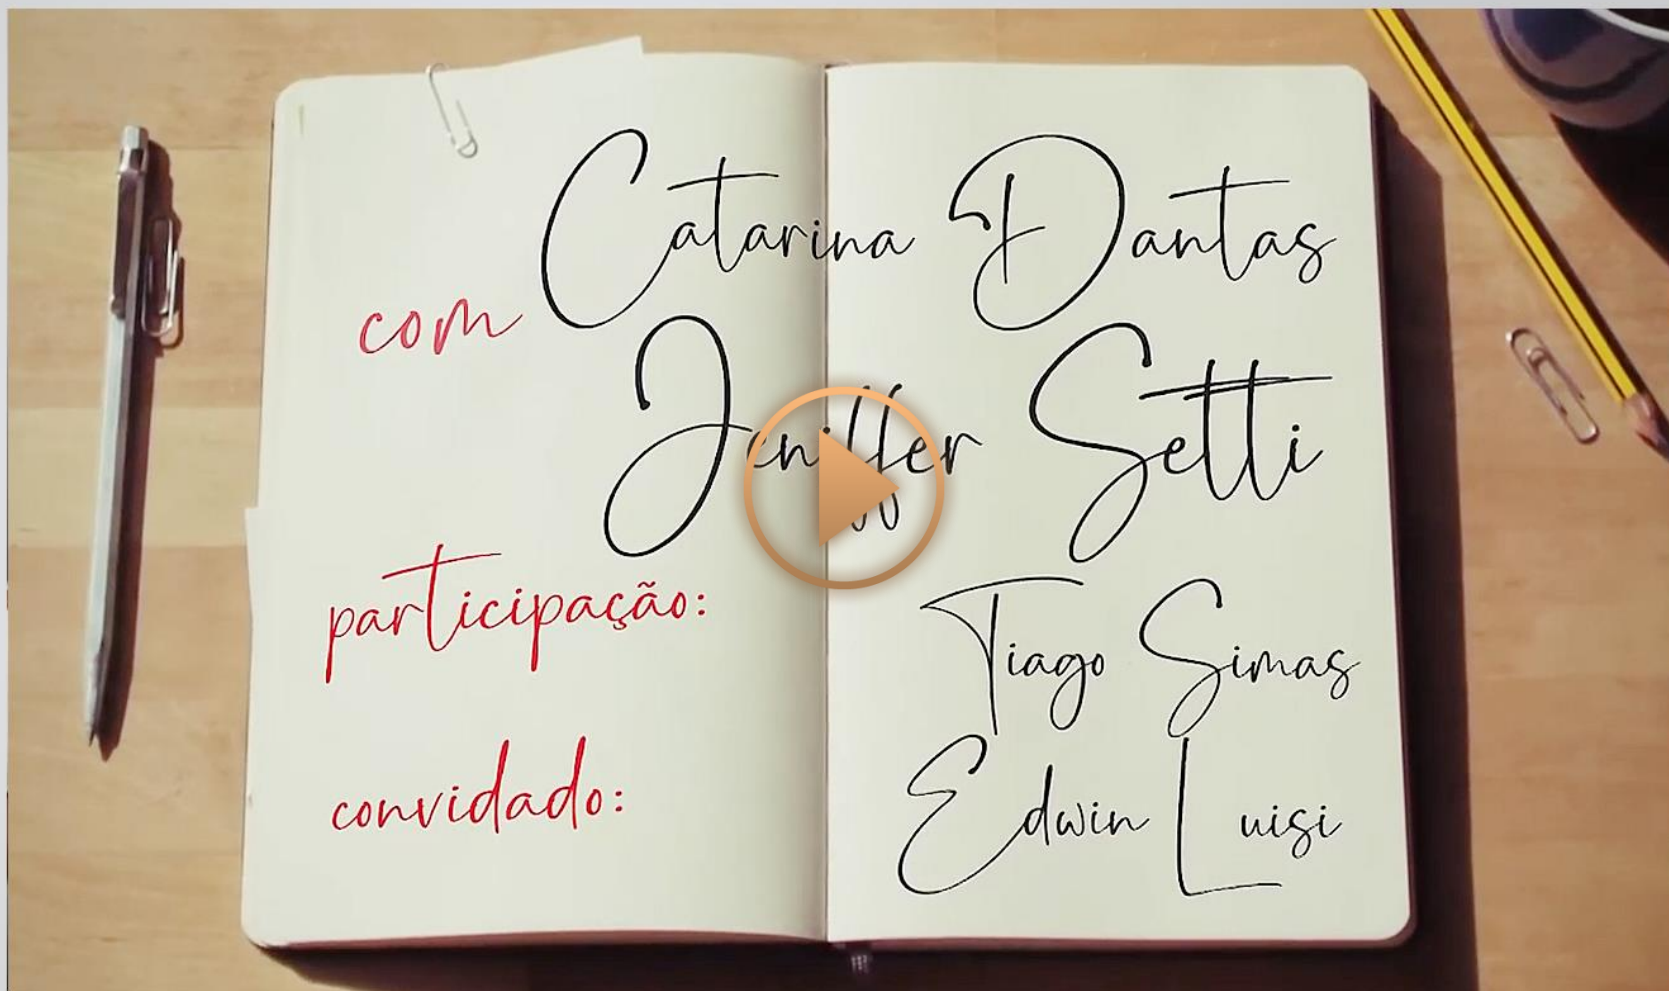 com
Catarina Dantas
Jeniffer Setti
participação:
Tiago Simas
convidado:
Edwin Luisi